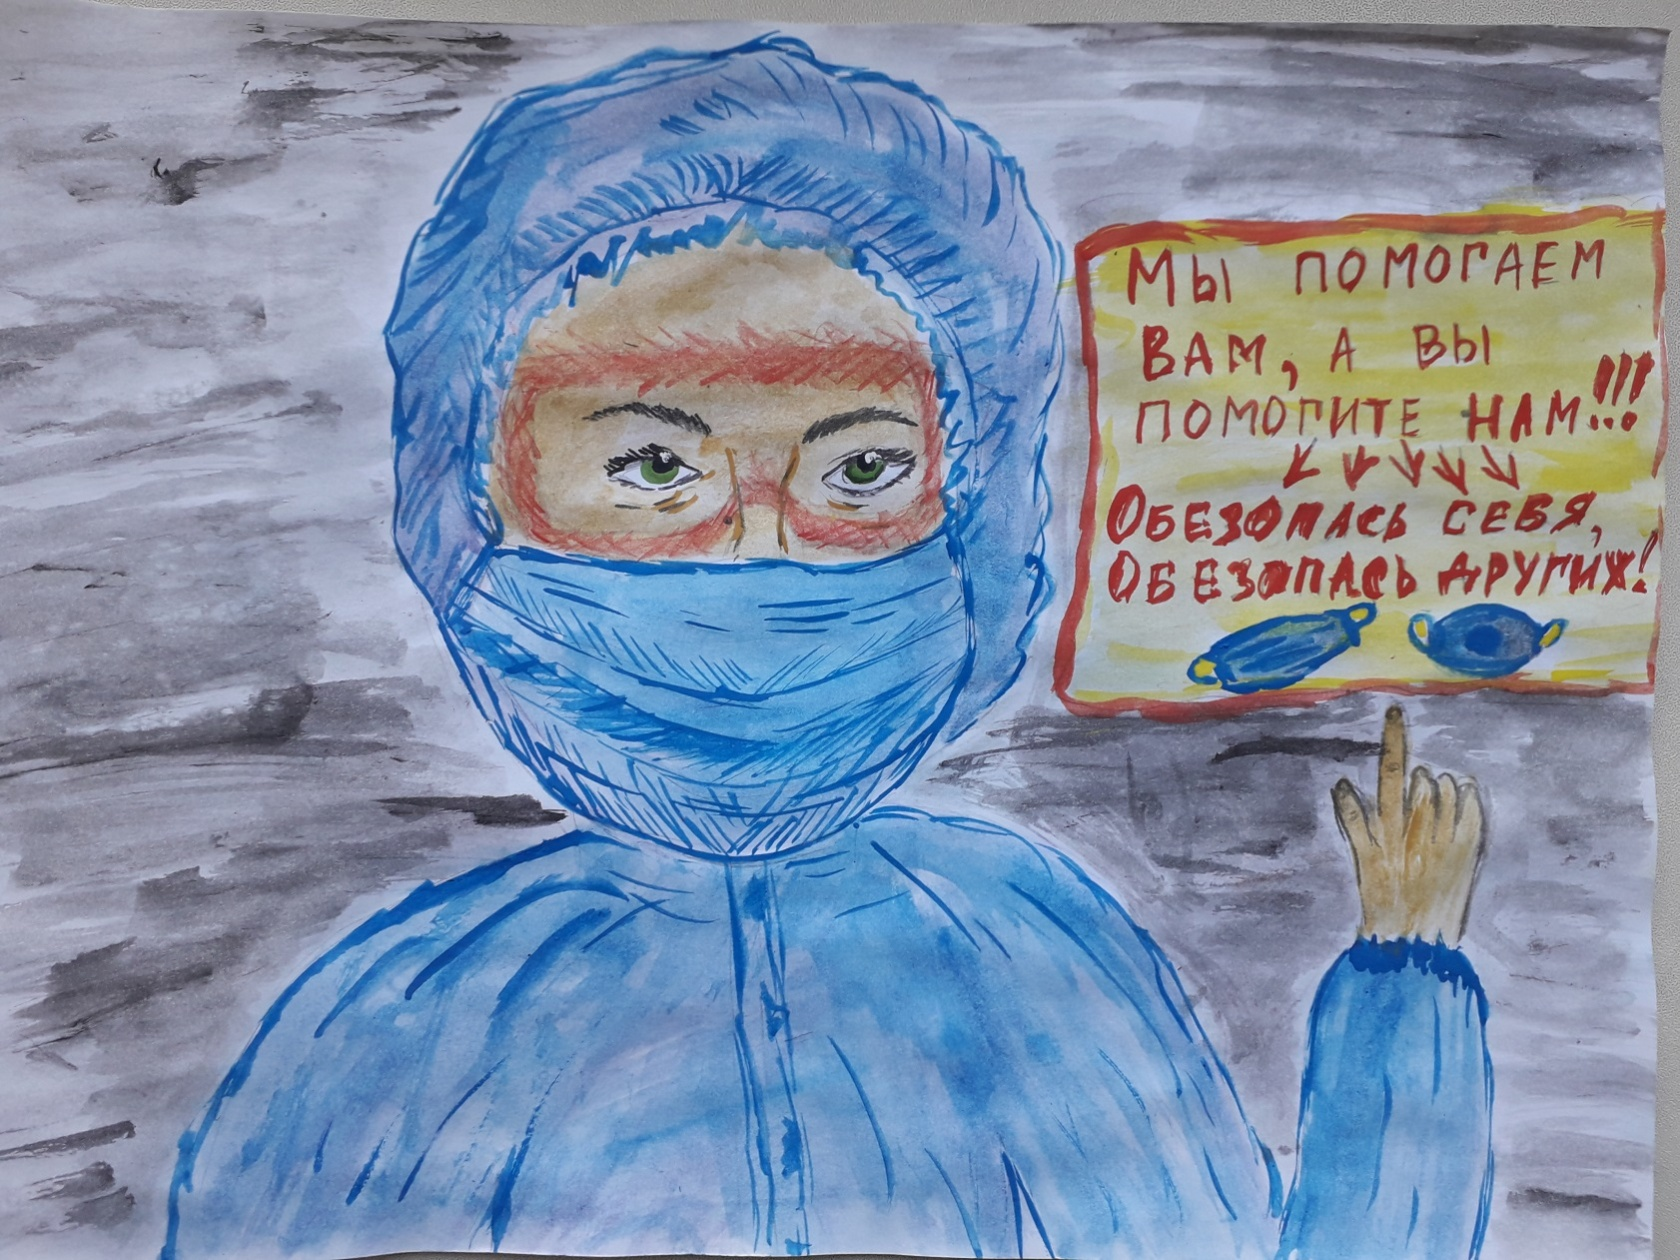 Мы помогаем
вам, а вы
помогите нам!!!
Обезопась себя,
Обезопась других!